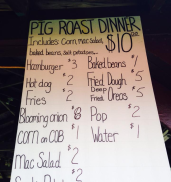 PIG ROAST DINNER
Includes: Corn, mac salad, $10
baked beans, salt potatoes...
Hamburger $3
Baked beans $1
Hot dog $2
Fried Dough $5
Fries $2
Deep Fried Oreos $5
Blooming onion $8
Pop $2
Corn on COB $1
Water $1
Mac Salad $2